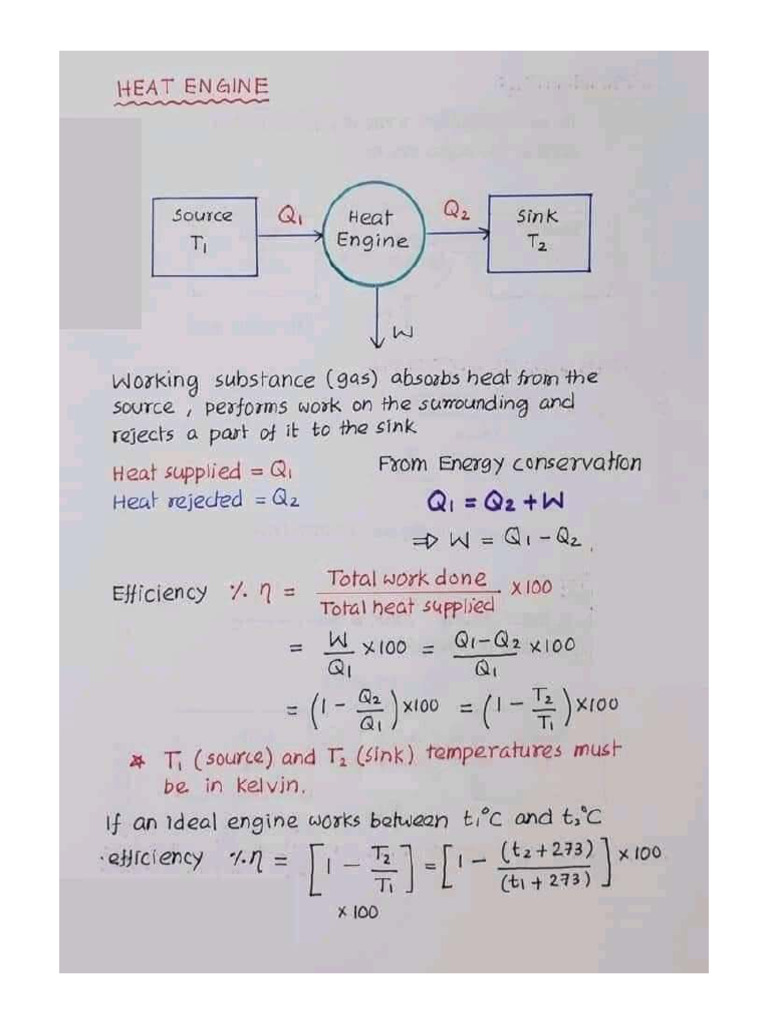 HEAT ENGINE
Source
T₁
Q₁
Heat
Engine
Q₂
Sink
T₂
W
Working substance (gas) absorbs heat from the
source, performs work on the surrounding and
rejects a part of it to the sink
Heat supplied = Q₁
Heat rejected = Q₂
From Energy conservation
Q₁ = Q₂ + W
⇒ W = Q₁ - Q₂.
Efficiency % η = Total work done / Total heat supplied × 100
= W/Q₁ × 100 = Q₁-Q₂/Q₁ × 100
= (1 - Q₂/Q₁) × 100 = (1 - T₂/T₁) × 100
* T₁ (source) and T₂ (sink) temperatures must
be in kelvin.
If an ideal engine works between t₁°C and t₂°C
efficiency % η = [1 - T₂/T₁] = [1 - (t₂ + 273)/(t₁ + 273)] × 100
× 100